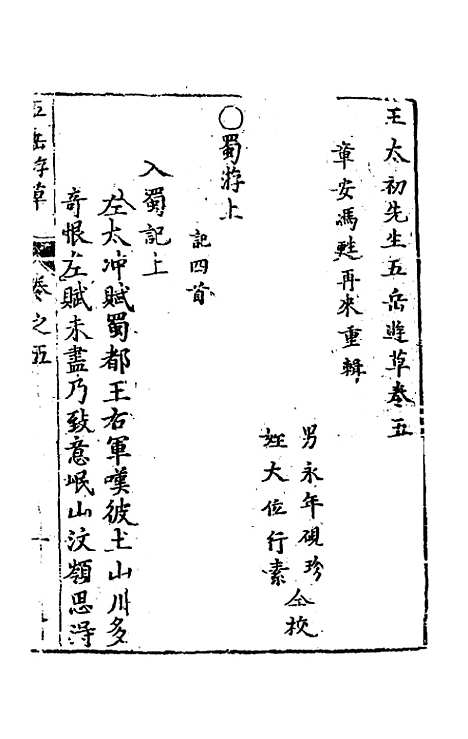 王太初先生五岳遊草卷五
章安馮甦再來重輯
男永年硯珍
姪大位行素
仝校
○蜀游上
記四首
入蜀記上
左太冲賦蜀都王右軍嘆彼土山川多
奇恨左賦未盡乃致意岷山汶嶺思得
五岳游草
卷之五
一